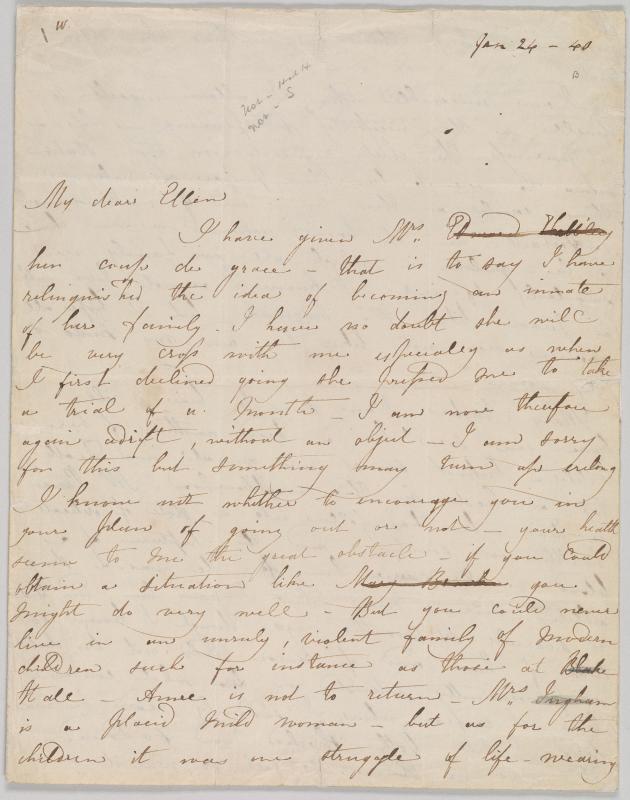 1 W
Jan 24 - 40
B
My dear Ellen
I have given Mrs. Edward
her coup de grace - that is to say I have
relinquished the idea of becoming an inmate
of her family - I have no doubt she will
be very cross with me especially as when
I first declined going she pressed me to take
a trial of a month - I am now therefore
again adrift, without an object - I am sorry
for this but something may turn up erelong
I know not whether to encourage you in
your plan of going out or not - your health
seems to me the great obstacle - if you could
obtain a situation like Mary Brooke you
might do very well - But you could never
live in an unruly, violent family of Modern
children such for instance as those at Blake
Hall - Anne is not to return - Mrs. Ingham
is a placid mild woman - but as for the
children it was one struggle of life-wearing